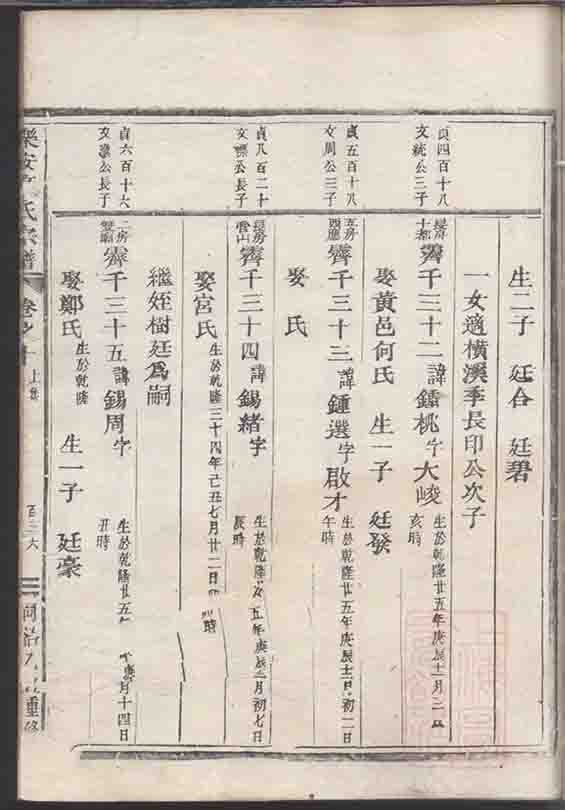 生二子 廷合 廷碧
一女適橫溪季長印公次子
貞四百十八
文統公三子
霽千三十二 諱鐳桃字大峻 生於乾隆廿五年庚辰十二月二
亥時
娶黃邑何氏 生一子 廷發
貞五百十八
文周公三子
霽千三十三 諱鍾選字啟才 生於乾隆廿五年庚辰十二月初二日
午時
娶 氏
貞八百二十
公長子
霽千三十四 諱錫緒字 生於乾隆 五年庚辰 月初七日
辰時
娶宮氏 生於乾隆三十四年己丑七月廿二日 時
繼姪樹廷為嗣
貞六百十六
公長子
二房
霽千三十五 諱錫周字 生於乾隆廿五年 月十四日
丑時
娶鄭氏 生於乾隆 生一子 廷豪
樂安 氏宗譜
卷之十 上
百三六
重修